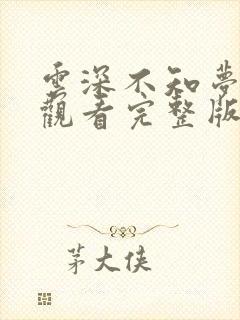 雲深不知夢
觀看完整版
茅大俠